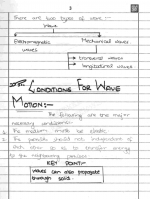 There are two types of wave :-
Wave
Electromagnetic waves
Mechanical waves
→ transverse waves
→ longitudinal waves
CONDITIONS FOR WAVE
MOTION:-
The following are the major
necessary conditions
The medium must be elastic
The particle should not independent of
each other so as to transfer energy
to the neighbouring particles
KEY POINT:-
Waves can also propagate
through solid.